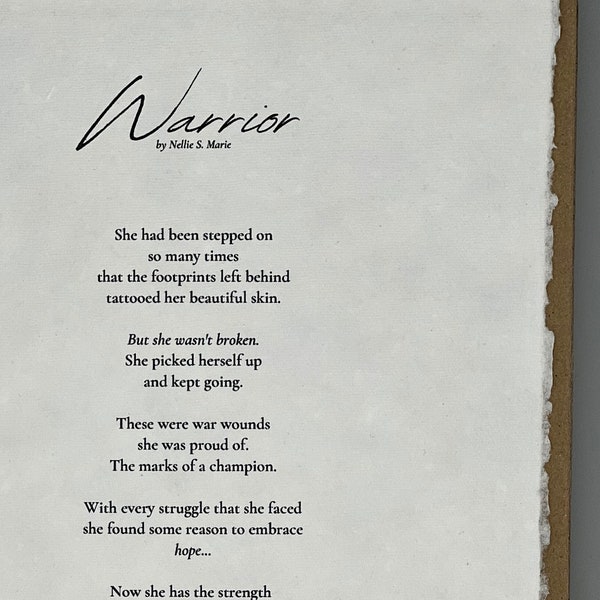 Warrior
by Nellie S. Marie
She had been stepped on
so many times
that the footprints left behind
tattooed her beautiful skin.
But she wasn't broken.
She picked herself up
and kept going.
These were war wounds
she was proud of.
The marks of a champion.
With every struggle that she faced
she found some reason to embrace
hope...
Now she has the strength